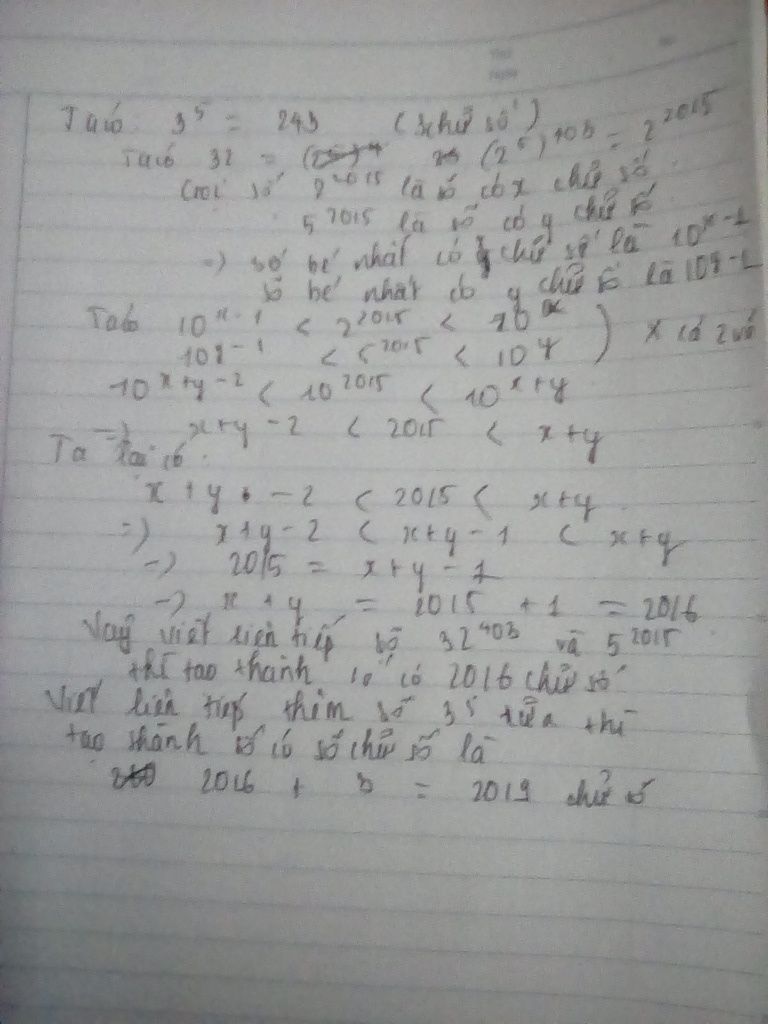 Ta có 3^5 = 243 (3 chữ số)
Ta có 32 = (2^5)^403 = 2^2015
Gọi số 2^2015 là số có x chữ số
5^2015 là số có y chữ số
=> số bé nhất có chữ số là 10^x-1
số bé nhất có y chữ số là 10^y-1
Ta có 10^x-1 < 2^2015 < 10^x
10^y-1 < 5^2015 < 10^y ) x cả 2 vế
10^x+y-2 < 10^2015 < 10^x+y
=> x+y-2 < 2015 < x+y
Ta lại có
x+y-2 < 2015 < x+y
=> x+y-2 < x+y-1 < x+y
=> 2015 = x+y-1
=> x+y = 2015 + 1 = 2016
Vậy viết liên tiếp số 32^403 và 5^2015
thì tạo thành số có 2016 chữ số
Viết liên tiếp thêm số 3^5 nữa thì
tạo thành số có số chữ số là
2016 + 3 = 2019 chữ số